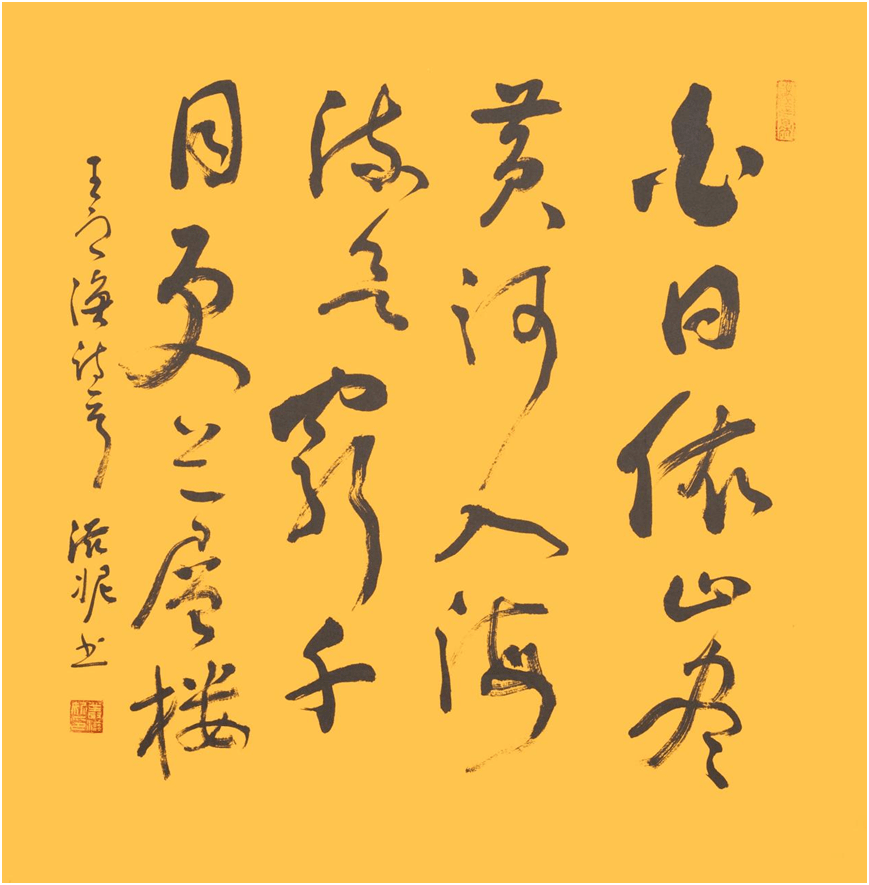 白日依山尽
黄河入海
流欲穷千
目更上一层楼
王之涣诗一首 书